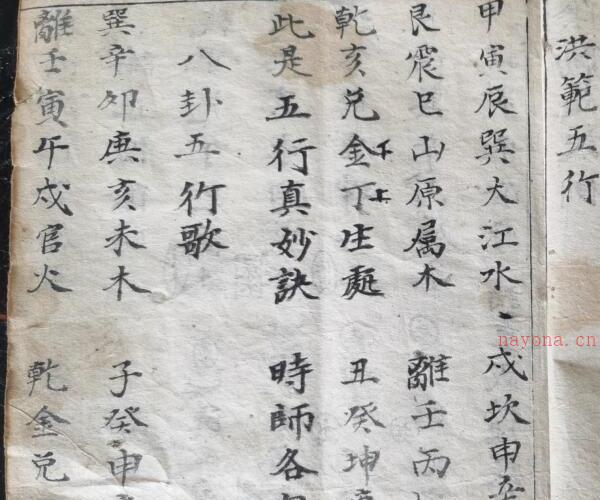 洪範五行
甲寅辰巽大江水、戌坎申
艮震巳山原属木 離壬丙
乾亥兌金下丁上生處 丑癸坤
此是五行真妙訣 時師各
八卦五行歌
巽辛卯庚亥未木 子癸申
離壬寅午戌官火 乾金兌
nayona.cn